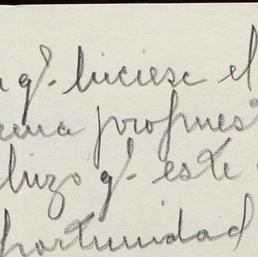 q. hiciese el
profues
hizo q. este
portunidad